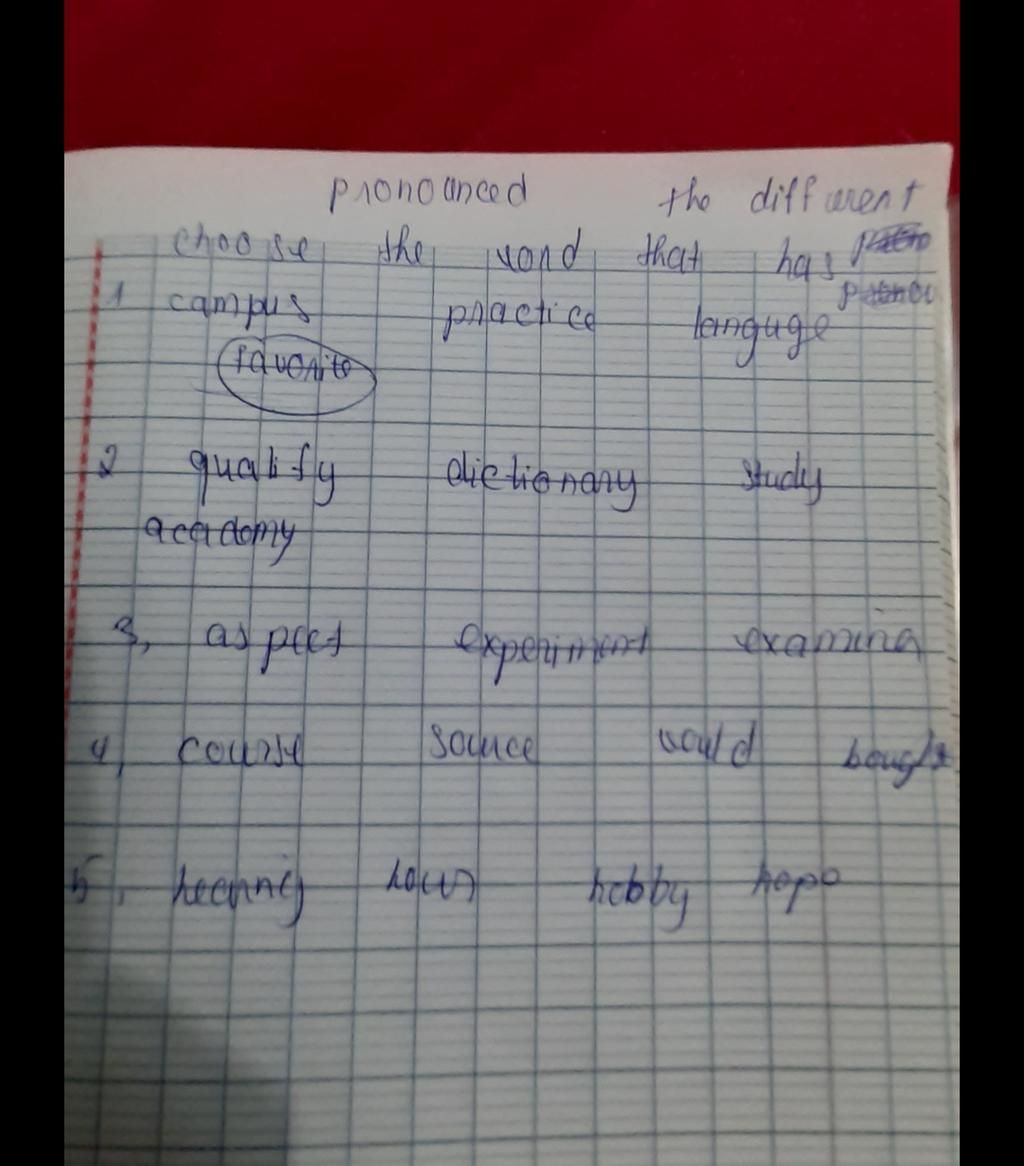 pronounced the different
choose the word that has
1 campus practice languge
favorite
2 qualify dictionary study
academy
3, aspect experiment examina
4, course source would bought
5, hearing hour hobby hope